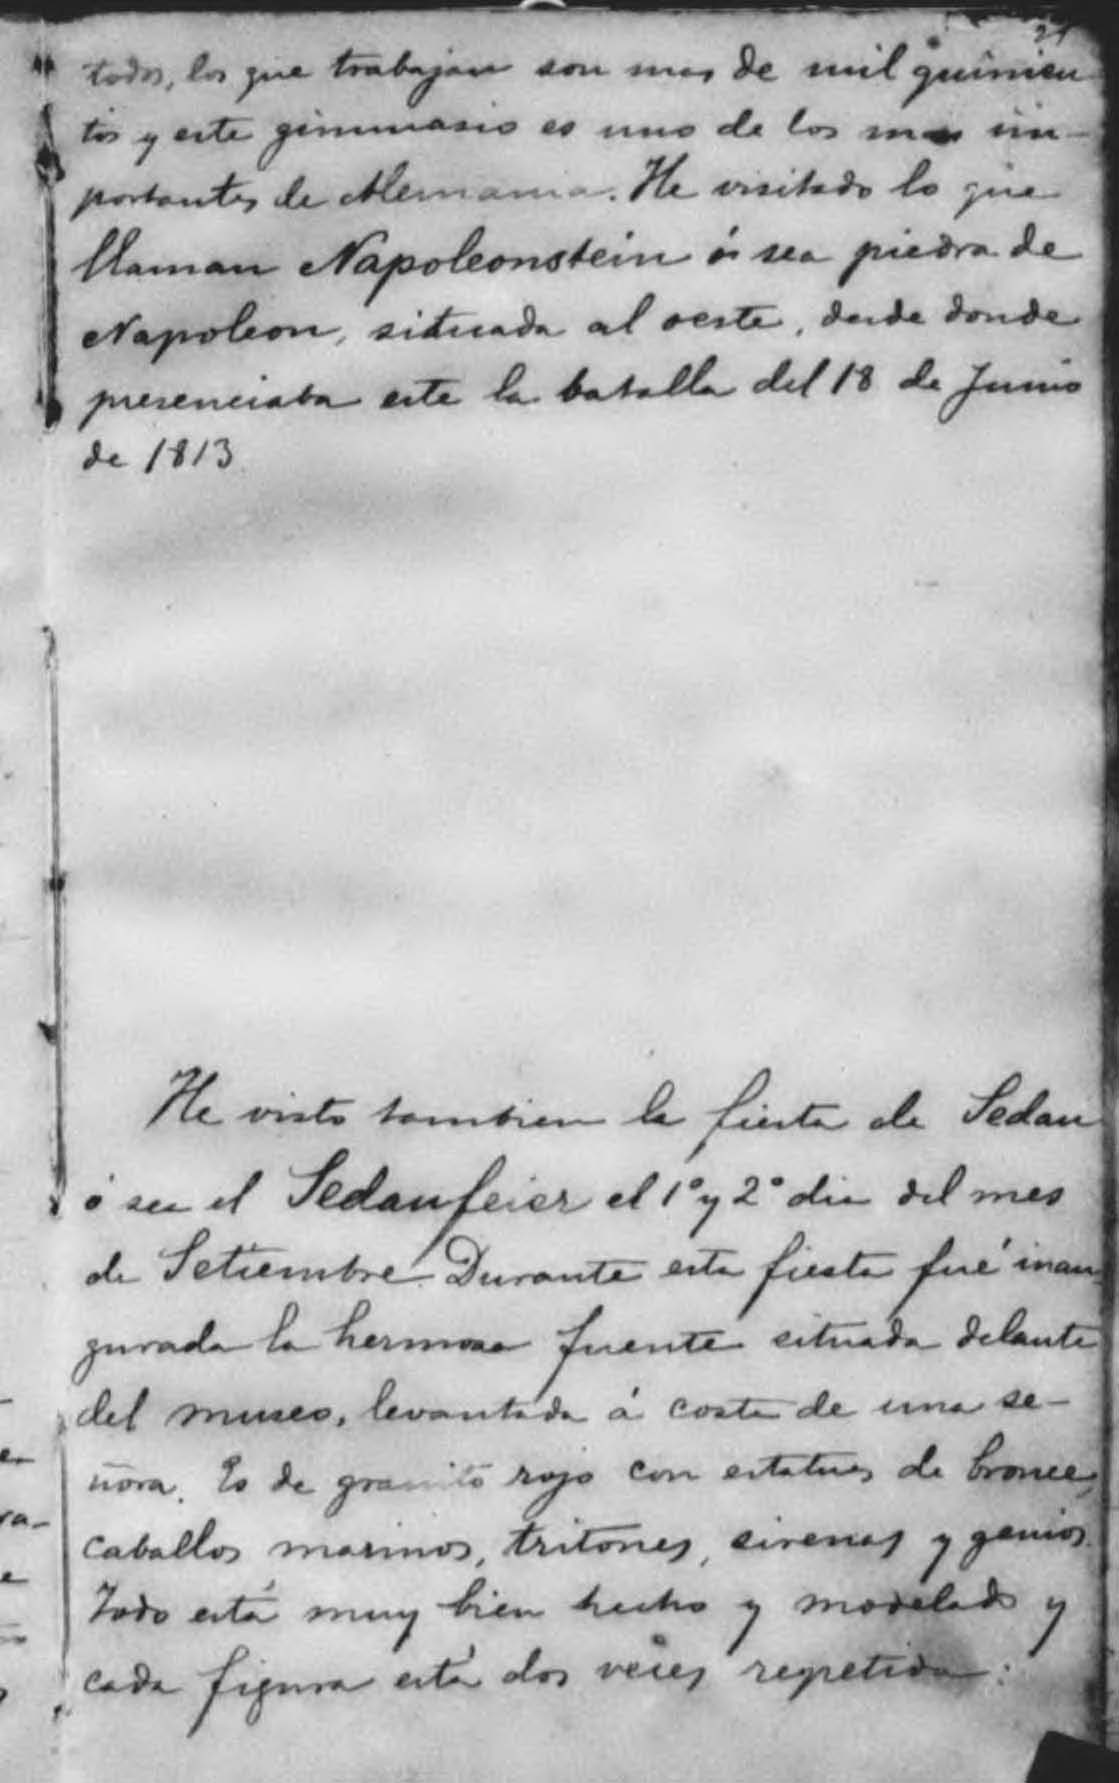 todos, los que trabajan son mas de mil quinien
tos y este gimnasio es uno de los mas im-
portantes de Alemania. He visitado lo que
llaman Napoleonstein ó sea piedra de
Napoleon, situada al oeste, desde donde
presenciaba este la batalla del 18 de Junio
de 1813
He visto tambien la fiesta de Sedan
ó sea el Sedanfeier el 1º y 2º dia del mes
de Setiembre. Durante esta fiesta fué inau
gurada la hermosa fuente situada delante
del museo, levantada á costa de una se-
ñora. Es de granito rojo con estatuas de bronce,
caballos marinos, tritones, sirenas y genios.
Todo está muy bien hecho y modelado y
cada figura está dos veces repetida: